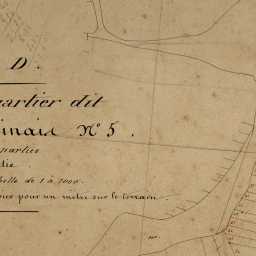 D.
artier dit
inais N° 5.
parties
elle de 1 à 1000.
pour un mètre sur le terrain.